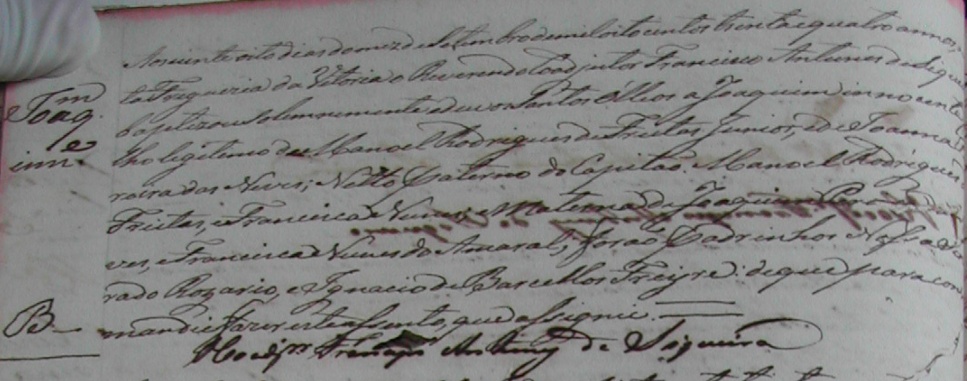 Aos vinte oito dias do mez de Setembro de mil oito centos trinta e quatro annos
ta Freguezia da Vitoria o Reverendo Coadjutor Francisco Antunes de Siquei
Joaqm baptizou solemnemente e deu os Santos Olleos a Joaquim innocente
inne lho legitimo de Manoel Rodrigues de Freitas Junior, e de Joanna
reira das Neves; Netto Paterno do Capitão Manoel Rodrigues
Freitas, e Francisca Nunes, e Materno de Joaquim Pereira
ves, e Francisca Nunes do Amaral; forão Padrinhos
rado Rozario, e Ignacio de Barcellos Freyre: de que para con
B. mandei fazer este assento, que assignei.
O Coadjor Francisco Antunes de Siqueira